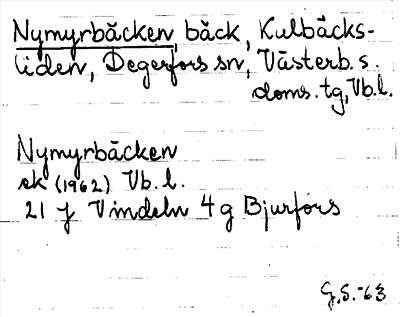 Nymyrbäcken, bäck, Kulbäcks-
liden, Degerfors sn, Västerb. s.
doms. tg, Vb. l.
Nymyrbäcken
ek (1962) Vb. l.
21 J Vindeln 4 g Bjurfors
G.S. -63